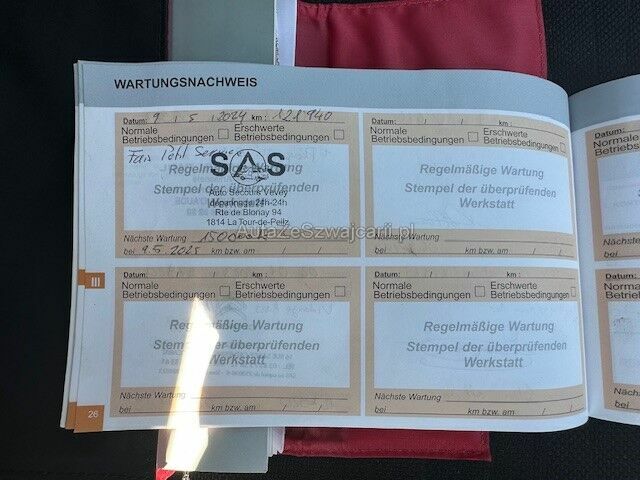 WARTUNGSNACHWEIS
Datum: 9 / 5 / 2024 km: 121940
Normale Betriebsbedingungen
Erschwerte Betriebsbedingungen
SAS
Auto Secours Vevey
dépannage 24h-24h
Rte de Blonay 94
1814 La Tour-de-Peilz
Nächste Wartung
bei 9.5.2025
Datum: / / km:
Normale Betriebsbedingungen
Erschwerte Betriebsbedingungen
Regelmäßige Wartung
Stempel der überprüfenden
Werkstatt
Nächste Wartung
bei km bzw. am / /
AutazeSzwajcarii.pl
III
Datum: / / km:
Normale Betriebsbedingungen
Erschwerte Betriebsbedingungen
Regelmäßige Wartung
Stempel der überprüfenden
Werkstatt
Nächste Wartung
bei km bzw. am / /
Datum: / / km:
Normale Betriebsbedingungen
Erschwerte Betriebsbedingungen
Regelmäßige Wartung
Stempel der überprüfenden
Werkstatt
Nächste Wartung
bei km bzw. am / /
26